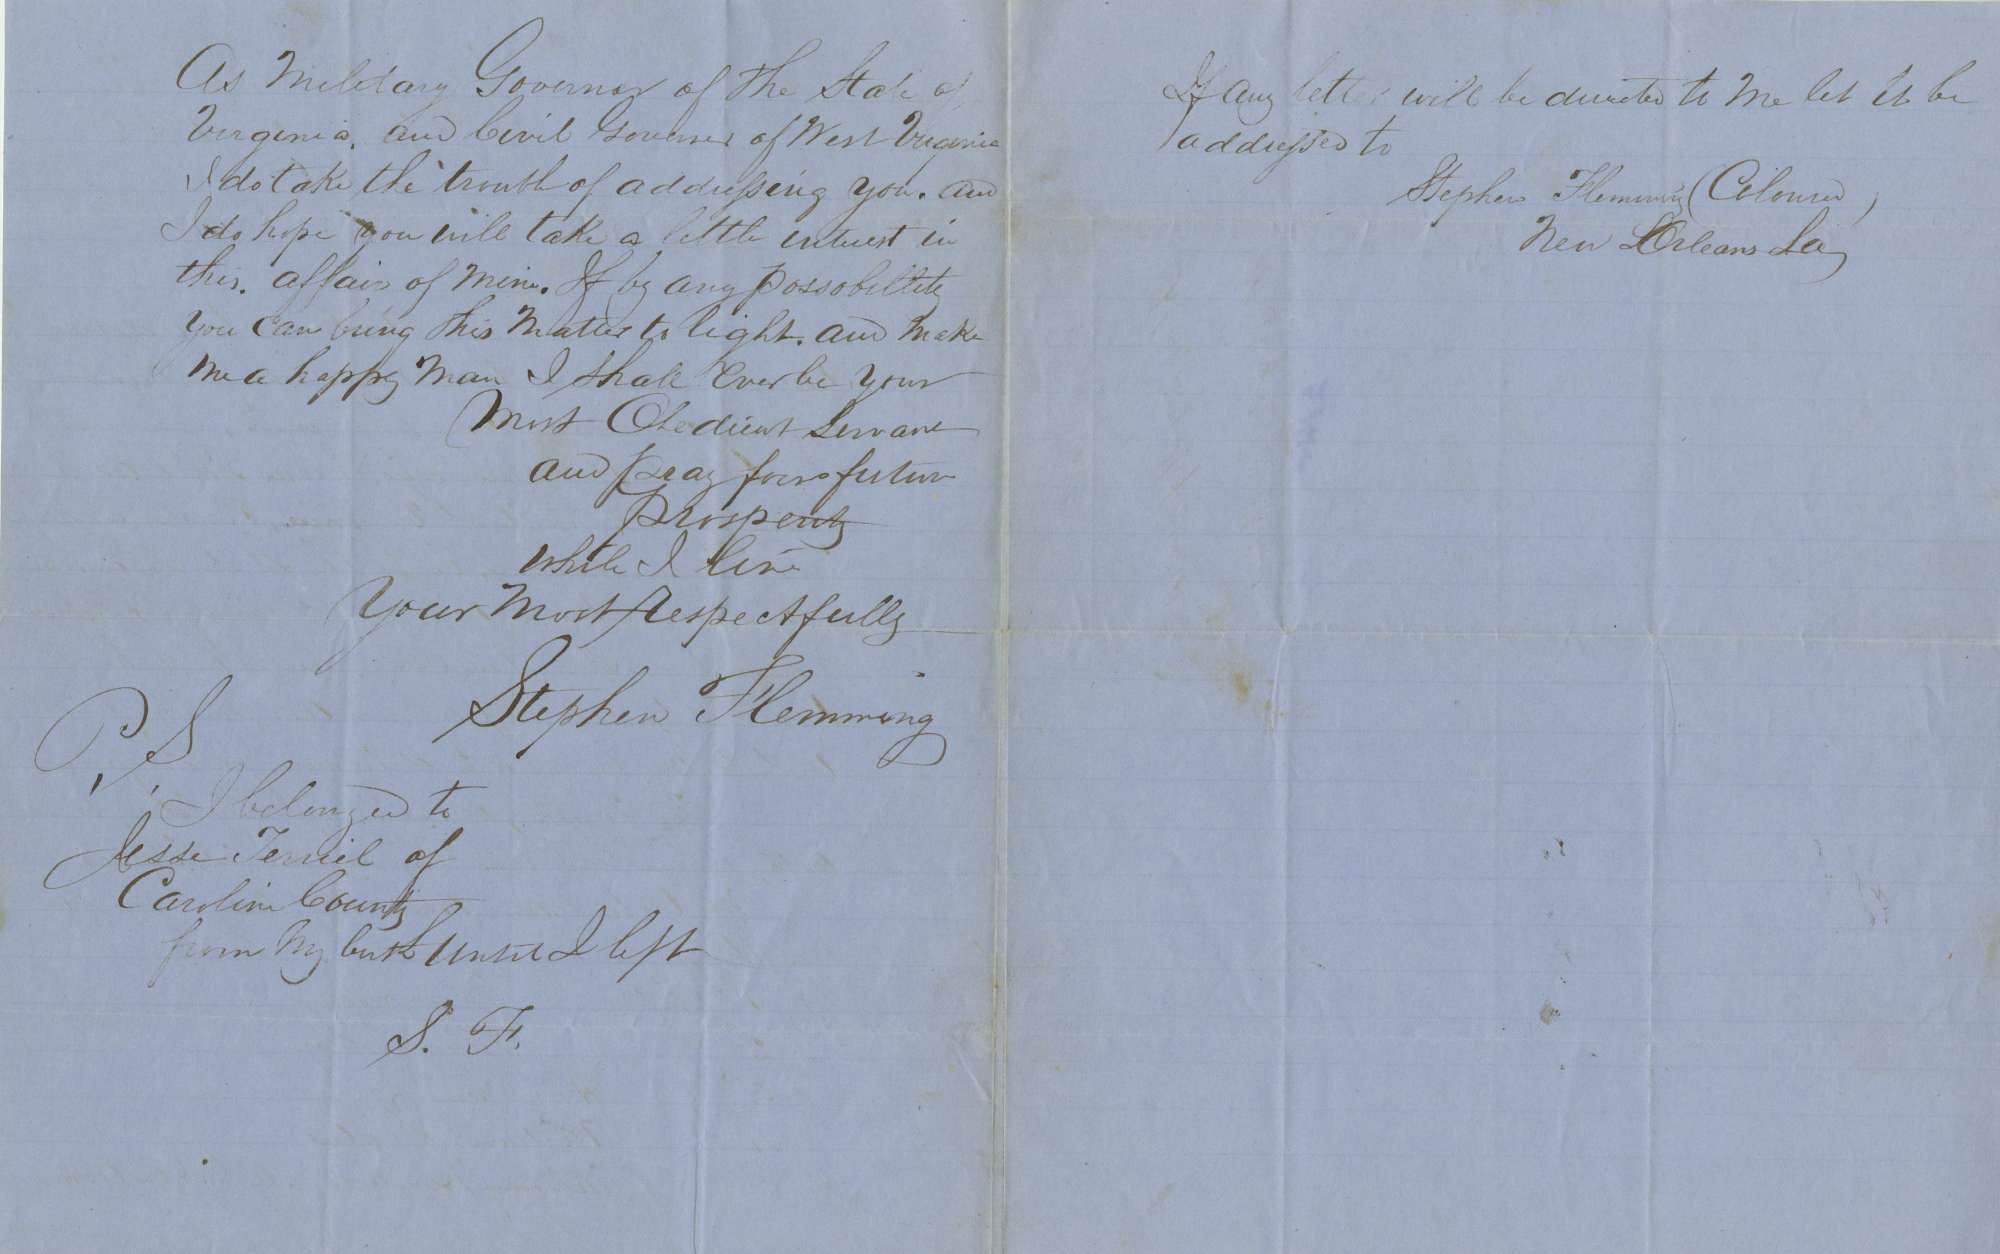 As Military Governor of the State of
Virginia. and Civil Governor of West Virginia
I do take the trouble of addressing you. and
I do hope you will take a little interest in
this. affair of mine. If by any possobillity
you can bring this matter to light. and make
me a happy man I shall ever be your
Most Obedient Servant
and pray for future
prosperity
while I live
Your Most Respectfully
Stephen Flemming
P. S.
I belonged to
Jesse Terril of
Caroline County
from my birth until I left
S. F.
If any letter will be directed to me let it be
addressed to
Stephen Flemming (Coloured)
New Orleans La